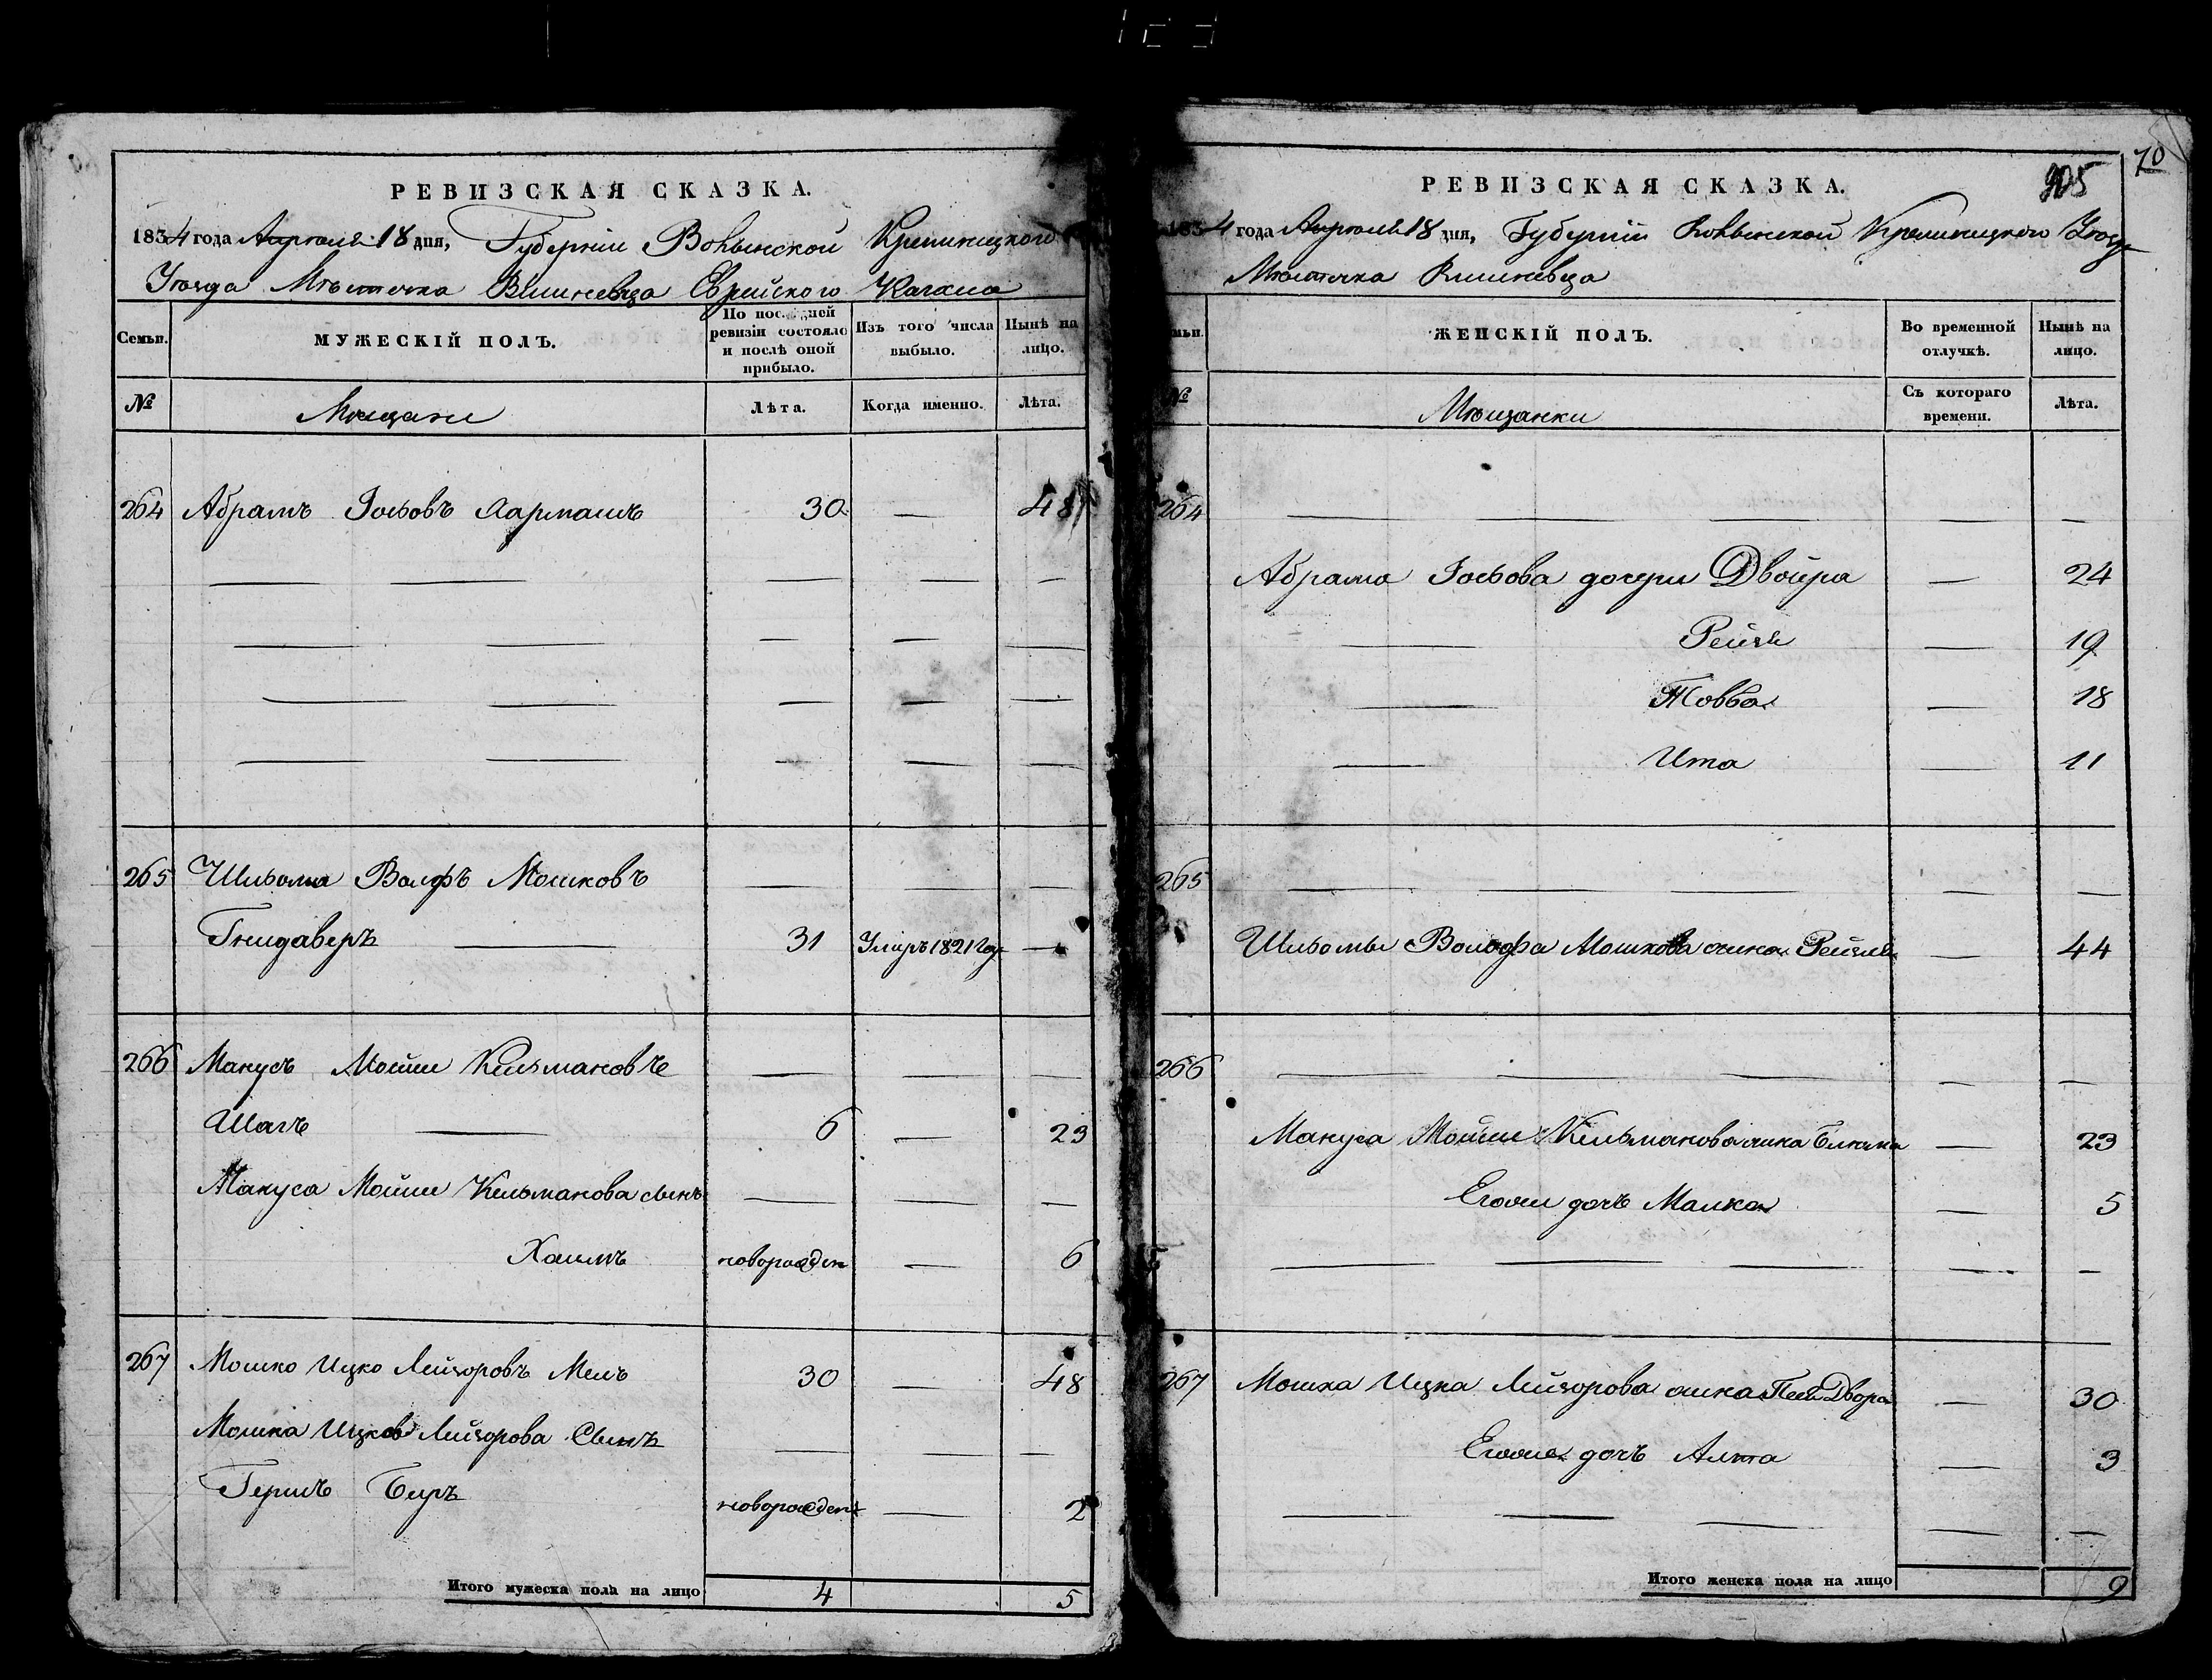 РЕВИЗСКАЯ СКАЗКА.
1834 года Апреля 18 дня, Губернiи Волынской Кременецкого
Уезда Местечка Вишневца Еврейского Кагала
Семьи.
МУЖЕСКIЙ ПОЛЪ.
По последней ревизiи состояло и послѣ оной прибыло.
Изъ того числа выбыло.
Нынѣ на лицо.
№
Мещане
Лѣта.
Когда именно.
Лѣта.
264 Абрамъ Iосьовъ 30 — 48
265 Шльома Волфъ Мошковъ — —
Гнидаверъ — 31 Умеръ 1821 год —
266 Макусъ Мойши Кельмановъ — — —
Шагъ — 6 — 23
Макуса Мойши Кельманова сынъ — — —
Хаимъ новорожден — 6
267 Мошко Ицко Лейзоровъ Мель 30 — 48
Мошка Ицкова Лейзорова Сынъ — — —
Гершъ Беръ новорожден — 2
Итого мужеска пола на лицо 4 5
70
905
РЕВИЗСКАЯ СКАЗКА.
1834 года Апреля 18 дня, Губернiи Волынской Кременецкого Уезда
Местечка Вишневца
Семьи.
ЖЕНСКIЙ ПОЛЪ.
Во временной отлучкѣ.
Нынѣ на лицо.
№
Мещанки
Съ котораго времени.
Лѣта.
264 — — — — —
Абрама Iосьова дочери Двойра — 24
— Рейзя — 19
— Товба — 18
— Ита — 11
265 — — — — —
Шльомы Волфа Мошкова жена Рейзля — 44
266 — — — — —
Макуса Мойши Кельманова жена — 23
Егоже дочь Малка — 5
— — — — —
267 Мошка Ицка Лейзорова жена Двора — 30
Егоже дочь Алта — 3
— — — — —
Итого женска пола на лицо 9